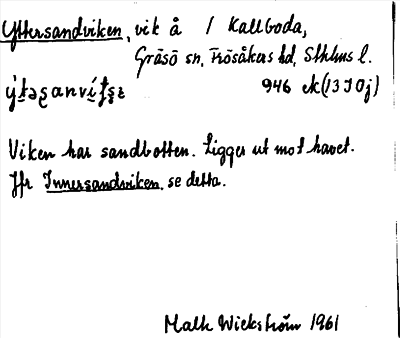 Yttersandviken, vik å / Kallboda,
Gräsö sn, Frösåkers hd, Sthlms l.
946 ek (13 I 0j)
Viken har sandbotten. Ligger ut mot havet.
Jfr Innersandviken, se detta.
Malk Wickström 1961